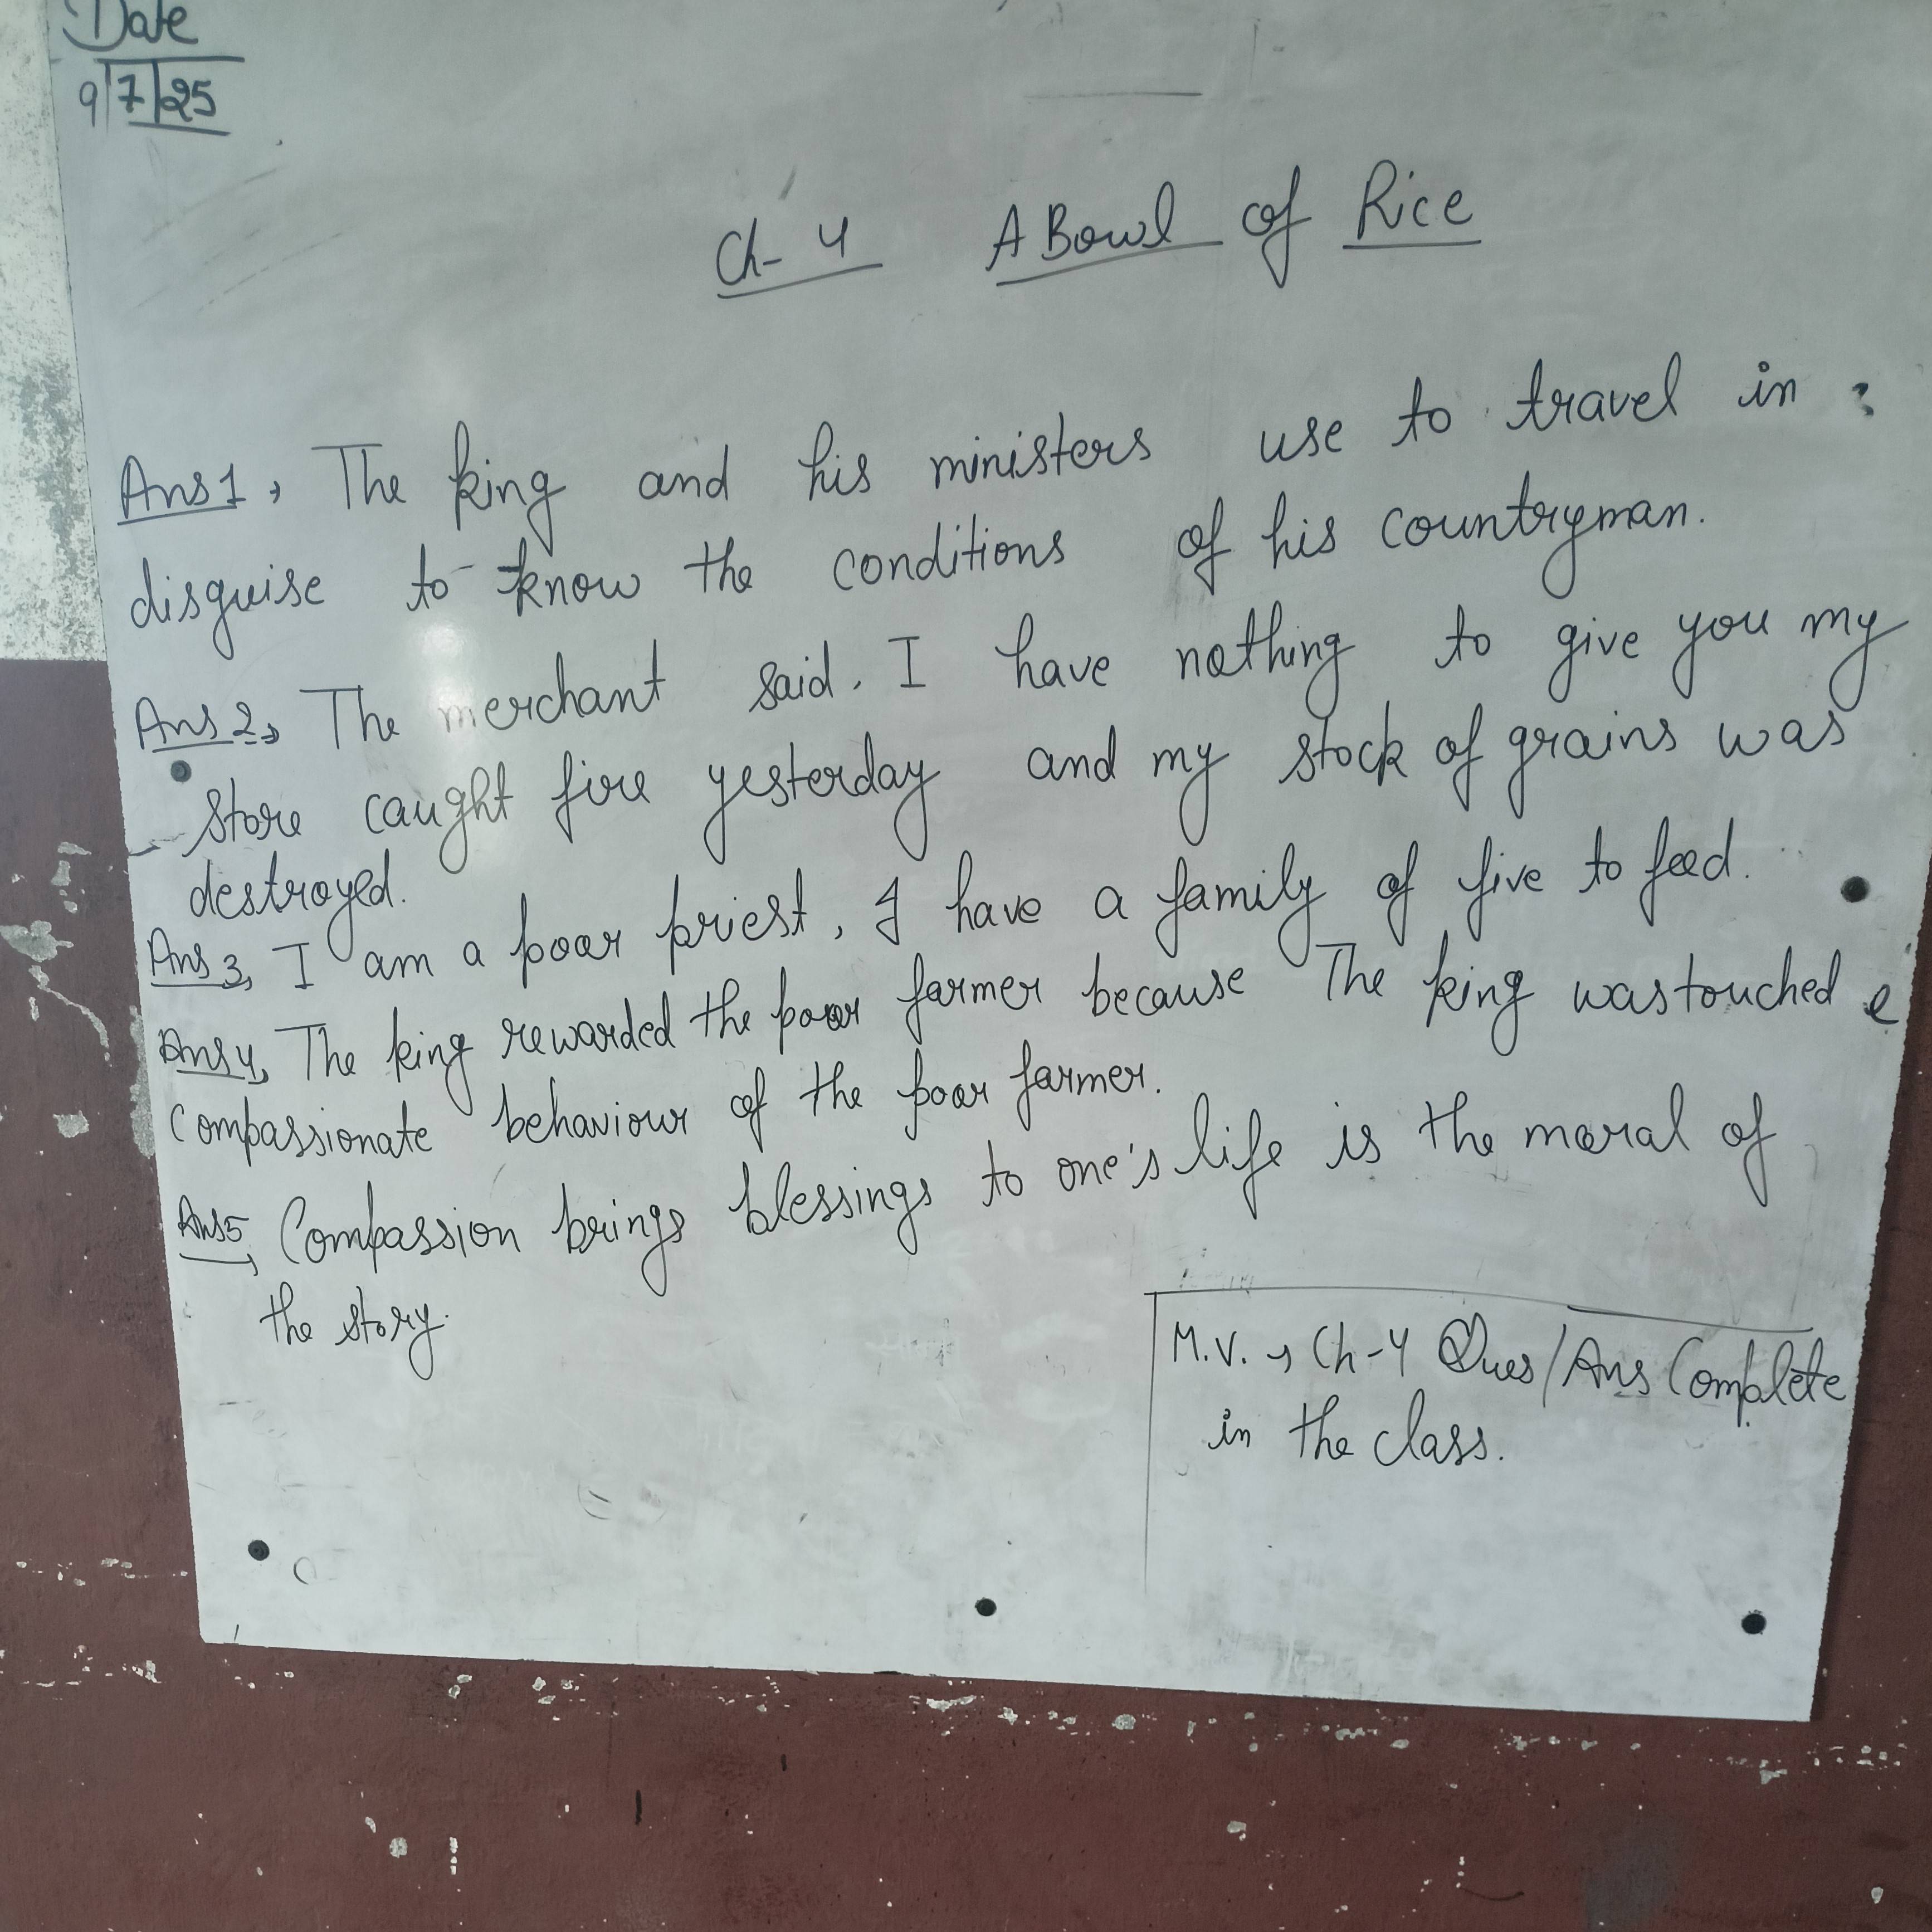 Date
9/7/25
Ch-4 A Bowl of Rice
Ans1, The king and his ministers use to travel in
disguise to know the conditions of his countryman.
Ans2, The merchant said. I have nothing to give you my
store caught fire yesterday and my stock of grains was
destroyed.
Ans3, I am a poor priest, I have a family of five to feed.
Ans4, The king rewarded the poor farmer because The king was touched
compassionate behaviour of the poor farmer.
Ans5, Compassion brings blessings to one's life is the moral of
the story.
M.V. → Ch-4 Ques/Ans Complete
in the class.